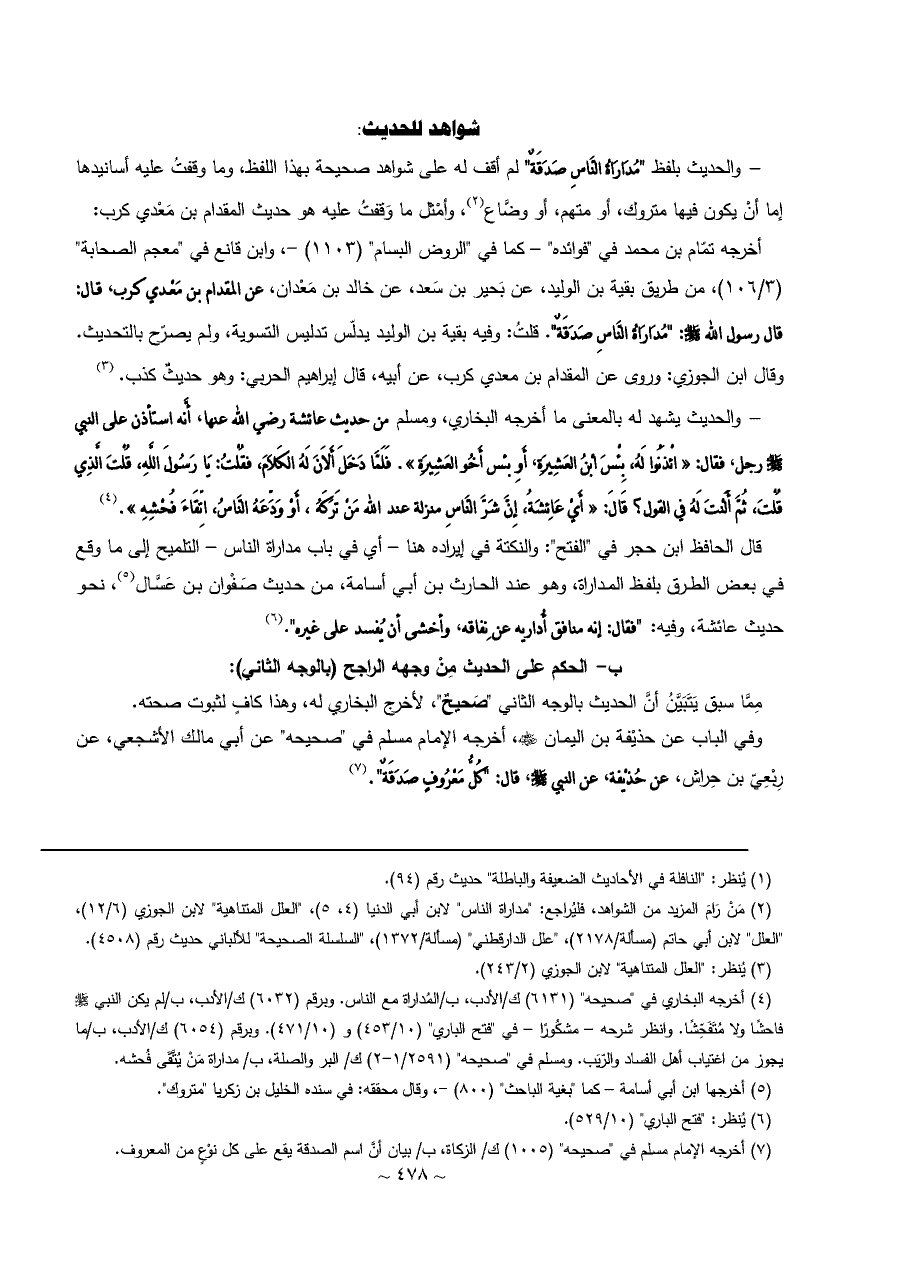 شواهد للحديث:
– والحديث بلفظ "مُدَارَاةُ النَّاسِ صَدَقَةٌ" لم أقف له على شواهد صحيحة بهذا اللفظ، وما وقفتُ عليه أسانيدها
إما أنْ يكون فيها متروك، أو متهم، أو وضَّاع(٢)، وأمْثل ما وَقفتُ عليه هو حديث المقدام بن مَعْدي كرب:
أخرجه تمّام بن محمد في "فوائده" – كما في "الروض البسام" (١١٠٣) –، وابن قانع في "معجم الصحابة"
(١٠٦/٣)، من طريق بقية بن الوليد، عن بَحير بن سَعد، عن خالد بن مَعْدان، عن المقدام بن مَعْدي كرب، قال:
قال رسول الله ﷺ: "مُدَارَاةُ النَّاسِ صَدَقَةٌ". قلتُ: وفيه بقية بن الوليد يدلّس تدليس التسوية، ولم يصرّح بالتحديث.
وقال ابن الجوزي: وروى عن المقدام بن معدي كرب، عن أبيه، قال إبراهيم الحربي: وهو حديثٌ كذب. (٣)
– والحديث يشهد له بالمعنى ما أخرجه البخاري، ومسلم من حديث عائشة رضي الله عنها، أَنه استأذن على النبي
ﷺ رجل، فقال: « ائْذَنُوا لَهُ، بِئْسَ ابْنُ العَشِيرَةِ، أو بِئْس أَخُو العَشِيرَةِ ». فَلَمَّا دَخَلَ أَلَانَ لَهُ الكَلَامَ، فقلْتُ: يَا رَسُولَ اللَّهِ، قُلْتَ الَّذِي
قُلْتَ، ثُمَّ أَلَنْتَ لَهُ في القول؟ قَالَ: « أَيْ عَائِشَةُ، إِنَّ شَرَّ النَّاسِ منزلة عند الله مَنْ تَرَكَهُ ، أَوْ وَدَعَهُ النَّاسُ، اتِّقَاءَ فُحْشِهِ ». (٤)
قال الحافظ ابن حجر في "الفتح": والنكتة في إيراده هنا – أي في باب مداراة الناس – التلميح إلى ما وقع
في بعض الطرق بلفظ المداراة، وهو عند الحارث بن أبي أسامة، من حديث صَفْوان بن عَسَّال(٥)، نحو
حديث عائشة، وفيه: "فقال: إنه منافق أُداريه عن نِفاقه، وأخشى أن يُفسد على غيره". (٦)
ب- الحكم على الحديث مِنْ وجهه الراجح (بالوجه الثاني):
مِمَّا سبق يَتَبَيَّنُ أنَّ الحديث بالوجه الثاني "صَحيحٌ"، لأخرج البخاري له، وهذا كافٍ لثبوت صحته.
وفي الباب عن حذيْفة بن اليمان ﷺ، أخرجه الإمام مسلم في "صحيحه" عن أبي مالك الأشجعي، عن
رِبْعِيّ بن حِراش، عن حُذيْفة، عن النبي ﷺ، قال: "كُلُّ مَعْرُوفٍ صَدَقَةٌ". (٧)
(١) يُنظر: "النافلة في الأحاديث الضعيفة والباطلة" حديث رقم (٩٤).
(٢) مَنْ رَامَ المزيد من الشواهد، فليُراجع: "مداراة الناس" لابن أبي الدنيا (٤، ٥)، "العلل المتناهية" لابن الجوزي (١٢/٦)،
"العلل" لابن أبي حاتم (مسألة/٢١٧٨)، "علل الدارقطني" (مسألة/١٣٧٢)، "السلسلة الصحيحة" للألباني حديث رقم (٤٥٠٨).
(٣) يُنظر: "العلل المتناهية" لابن الجوزي (٢٤٣/٢).
(٤) أخرجه البخاري في "صحيحه" (٦١٣١) ك/الأدب، ب/المُداراة مع الناس. وبرقم (٦٠٣٢) ك/الأدب، ب/لم يكن النبي ﷺ
فاحشًا ولا مُتَفَحِّشًا. وانظر شرحه – مشكُورًا – في "فتح الباري" (٤٥٣/١٠) و (٤٧١/١٠). وبرقم (٦٠٥٤) ك/الأدب، ب/ما
يجوز من اغتياب أهل الفساد والرِّيَب. ومسلم في "صحيحه" (١/٢٥٩١-٢) ك/ البر والصلة، ب/ مداراة مَنْ يُتَّقَى فُحشه.
(٥) أخرجها ابن أبي أسامة – كما "بغية الباحث" (٨٠٠) –، وقال محققه: في سنده الخليل بن زكريا "متروك".
(٦) يُنظر: "فتح الباري" (٥٢٩/١٠).
(٧) أخرجه الإمام مسلم في "صحيحه" (١٠٠٥) ك/ الزكاة، ب/ بيان أنَّ اسم الصدقة يقع على كل نوْعٍ من المعروف.
~ ٤٧٨ ~